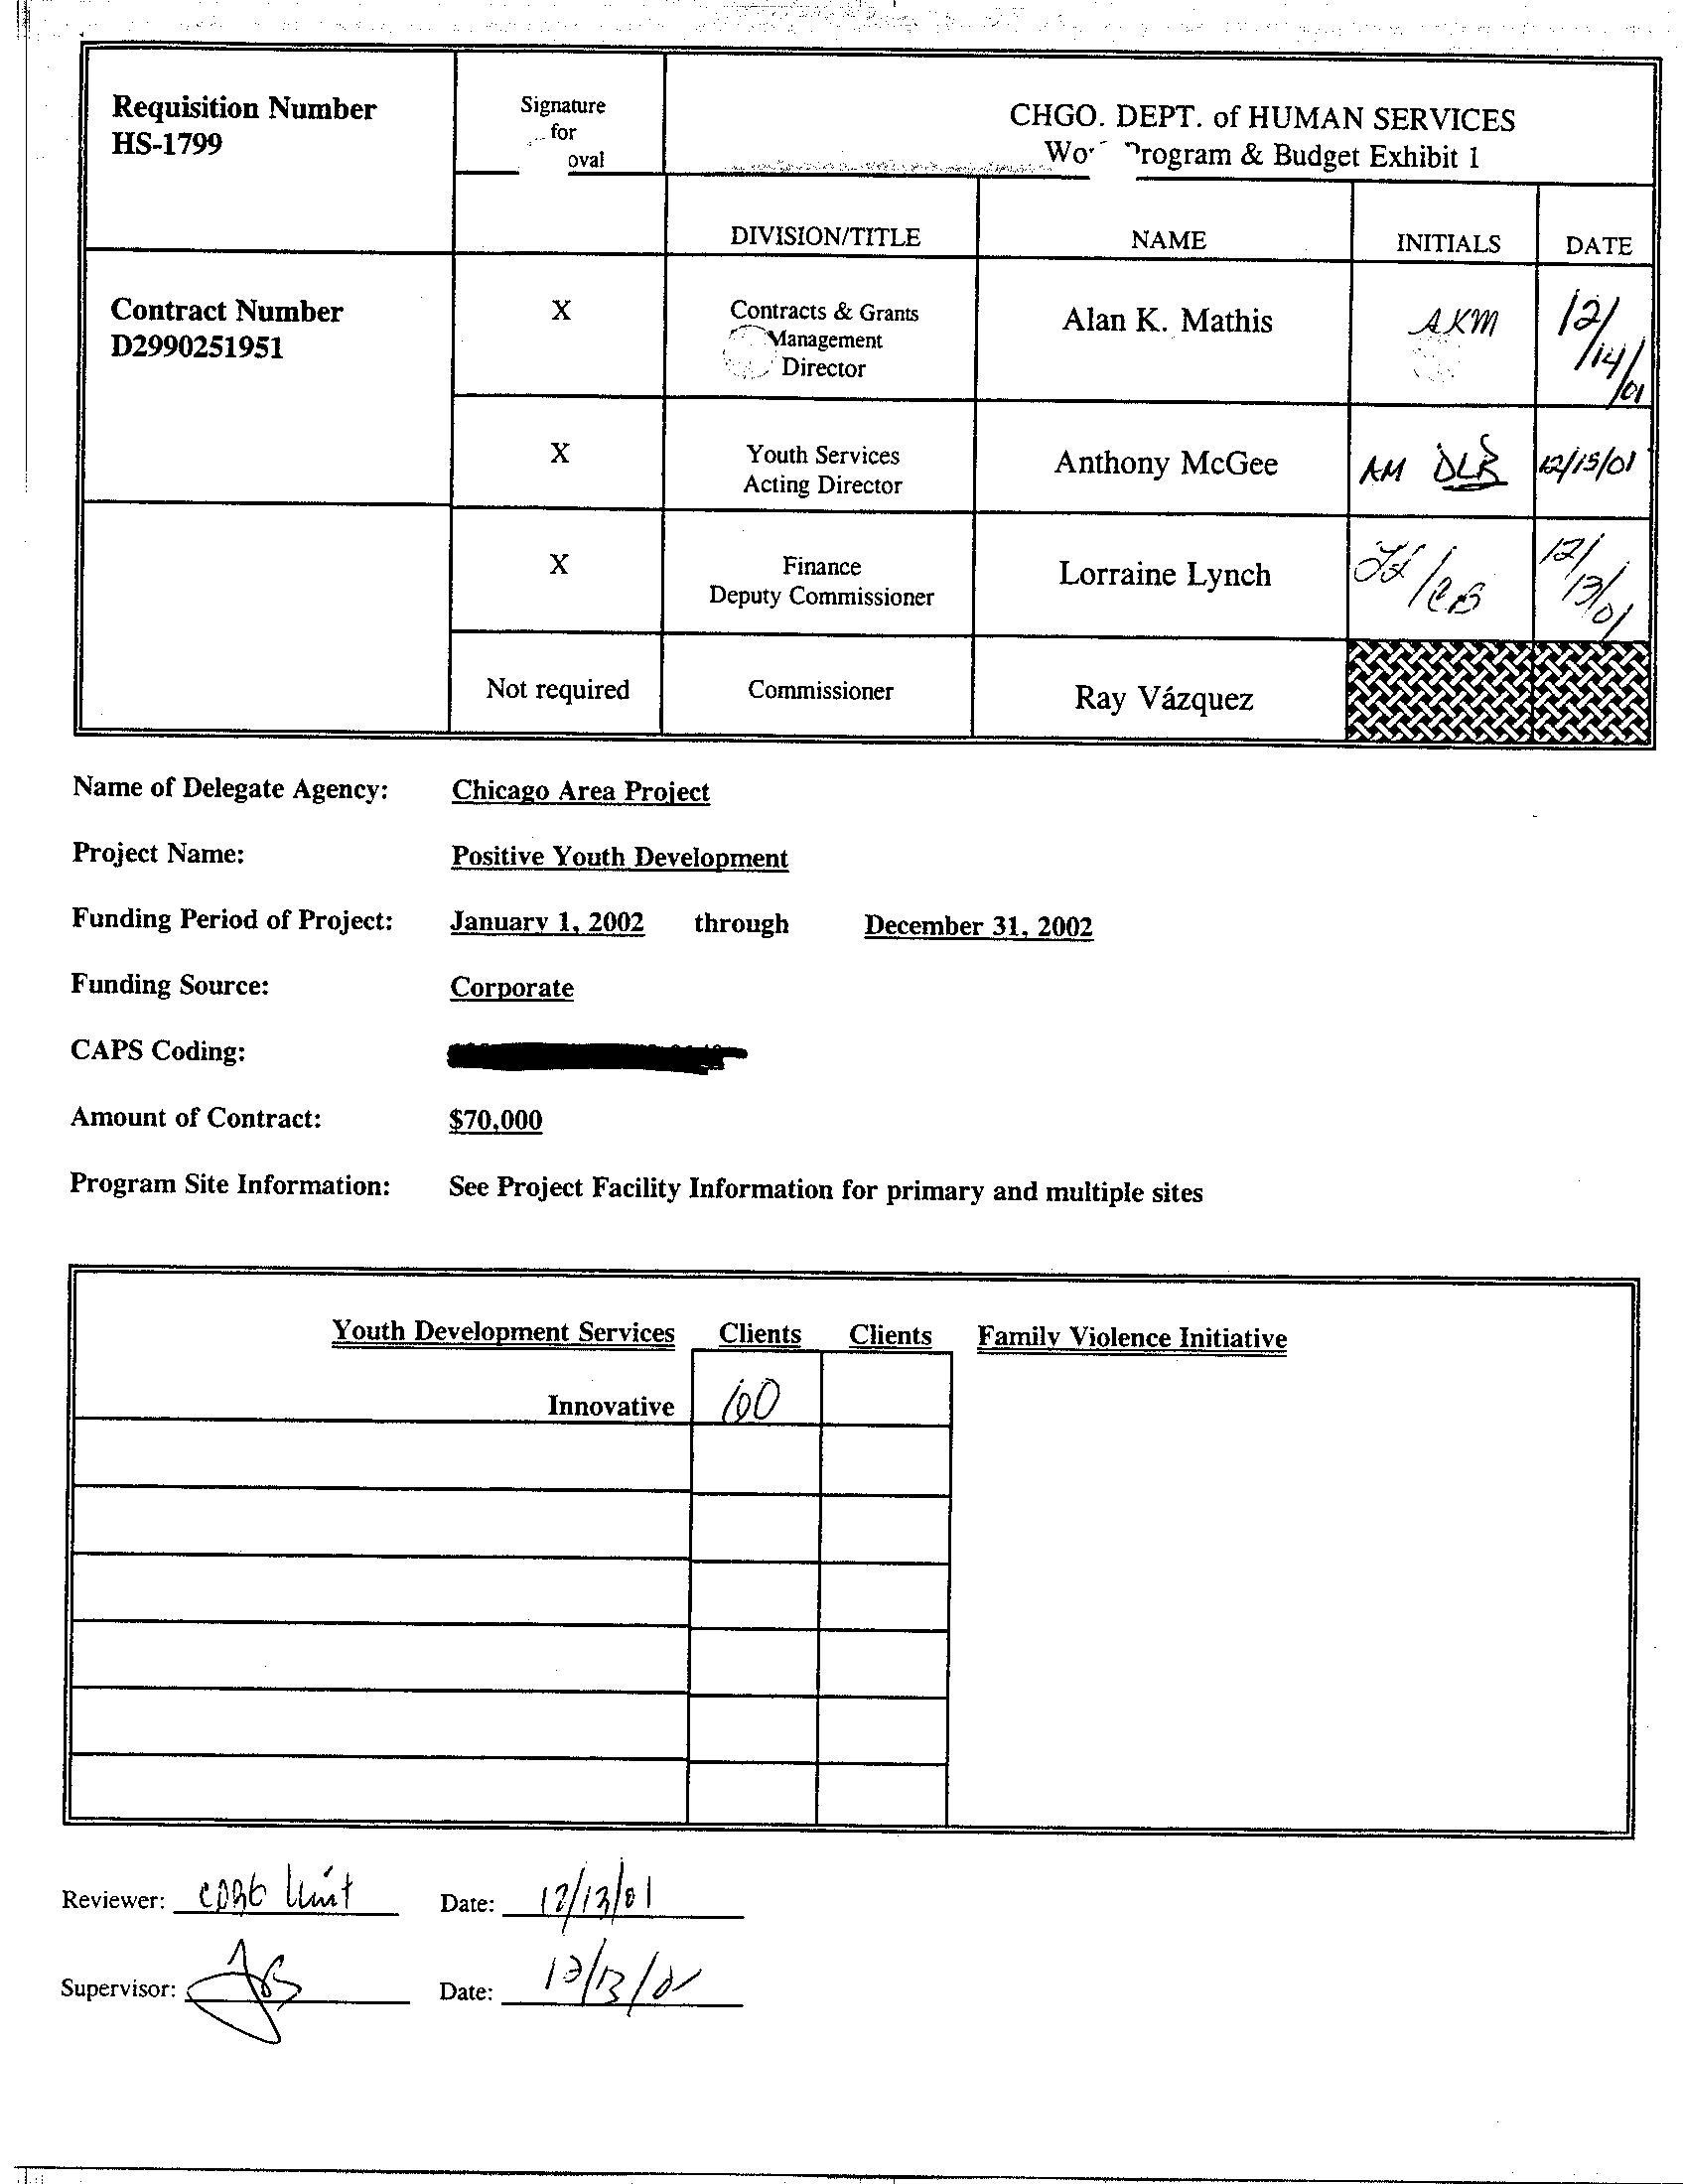 Requisition Number
HS-1799
Signature
for
oval
CHGO. DEPT. of HUMAN SERVICES
Program & Budget Exhibit 1
DIVISION/TITLE
NAME
INITIALS
DATE
Contract Number
D2990251951
X
Contracts & Grants
Management
Director
Alan K. Mathis
AKM
12/14/01
X
Youth Services
Acting Director
Anthony McGee
AM DLR
12/15/01
X
Finance
Deputy Commissioner
Lorraine Lynch
12/13/01
Not required
Commissioner
Ray Vázquez
Name of Delegate Agency: Chicago Area Project
Project Name: Positive Youth Development
Funding Period of Project: January 1, 2002 through December 31, 2002
Funding Source: Corporate
CAPS Coding:
Amount of Contract: $70,000
Program Site Information: See Project Facility Information for primary and multiple sites
Youth Development Services Clients Clients Family Violence Initiative
Innovative
Reviewer: Unit Date: 12/13/01
Supervisor: Date: 12/13/01